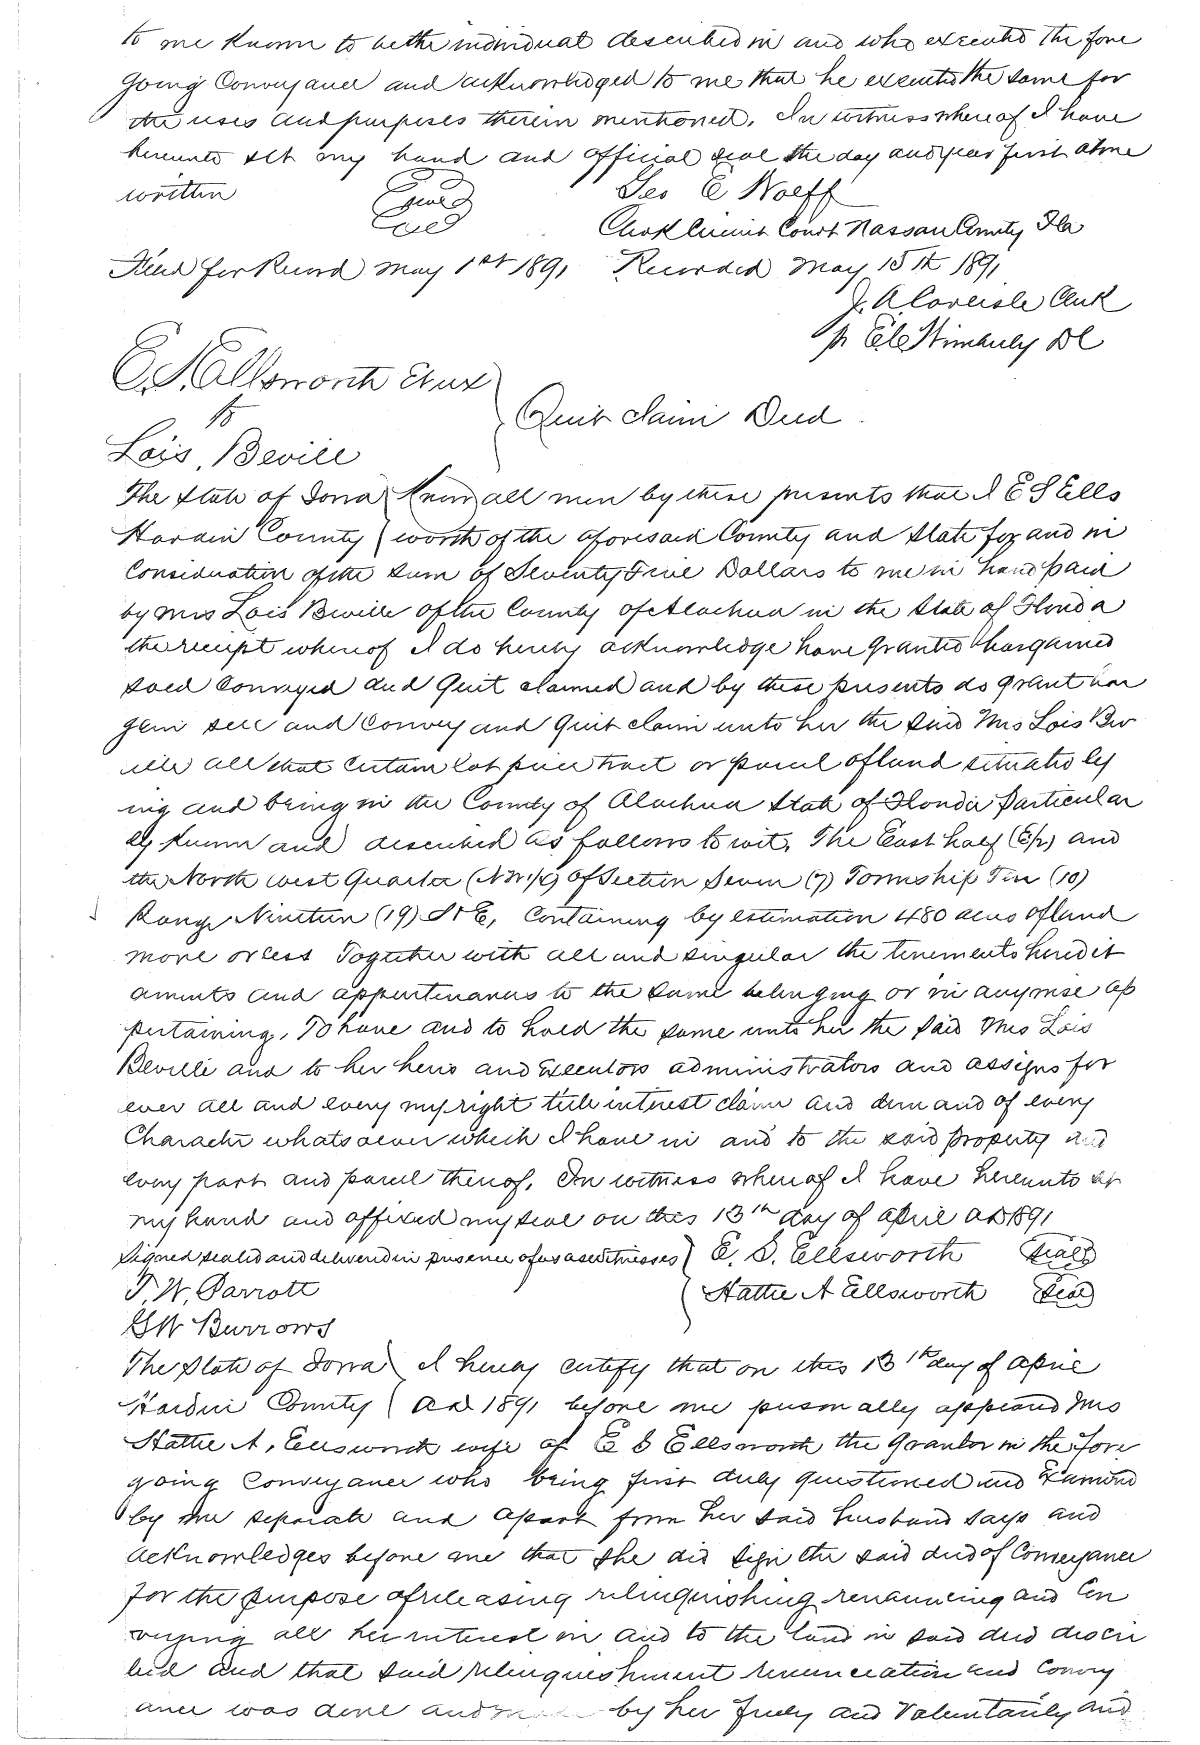 to me known to be the individual described in and who executed the fore
going Conveyance and acknowledged to me that he executed the same for
the uses and purposes therein mentioned. In witness whereof I have
hereunto set my hand and official seal the day and year first above
written Geo E Wolff
Clerk Circuit Court Nassau County Fla
Filed for Record May 1st 1891 Recorded May 15th 1891
J. A. Carlisle Clerk
pr E.C. Wimberly DC
E. S. Ellsworth Et ux
to
Quit claim Deed
Lois Beville
The State of Iowa Know all men by these presents that I E S Ells
Hardin County worth of the aforesaid County and State for and in
Consideration of the sum of Seventy Five Dollars to me in hand paid
by Mrs Lois Beville of the County of Alachua in the State of Florida
the receipt whereof I do hereby acknowledge have granted bargained
sold Conveyed and Quit claimed and by these presents do grant bar
gain sell and Convey and Quit claim unto her the said Mrs Lois Bev
ille all that certain lot piece tract or parcel of land situate ly
ing and being in the County of Alachua State of Florida Particular
ly known and described as follows to wit. The East half (E/2) and
the North west Quarter (NW 1/4) of Section Seven (7) Township Ten (10)
Range Nineteen (19) S & E, Containing by estimation 480 acres of land
more or less Together with all and singular the tenements heredit
aments and appurtenances to the same belonging or in anywise ap
pertaining, To have and to hold the same unto her the said Mrs Lois
Beville and to her heirs and Executors administrators and assigns for
ever all and every my right title interest claim and demand of every
Character whatsoever which I have in and to the said property and
every part and parcel thereof. In witness whereof I have hereunto set
my hand and affixed my seal on this 13th day of April AD 1891
Signed sealed and delivered in presence of us as witnesses E. S. Ellsworth Seal
T. W. Parrott Hattie A Ellsworth Seal
GW Burrows
The State of Iowa I hereby certify that on this 13th day of April
Hardin County A.D. 1891 before me personally appeared Mrs
Hattie A. Ellsworth wife of E S Ellsworth the Grantor in the fore
going Conveyance who being first duly questioned and Examined
by me separate and apart from her said husband says and
acknowledges before me that she did sign the said deed of Conveyance
for the purpose of releasing relinquishing renouncing and Con
veying all her interest in and to the land in said deed descri
bed and that said relinquishment renunciation and Convey
ance was done and by her freely and Voluntarily and